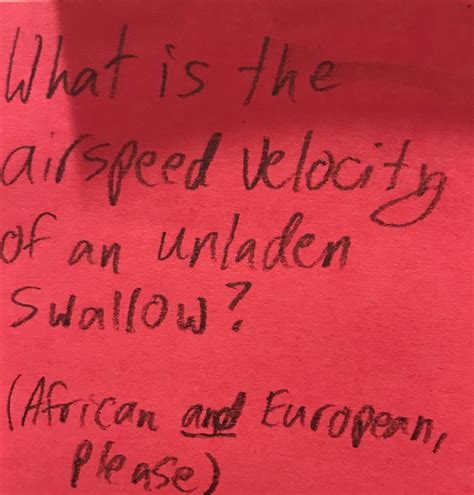 What is the
airspeed velocity
of an unladen
swallow?
(African and European,
please)